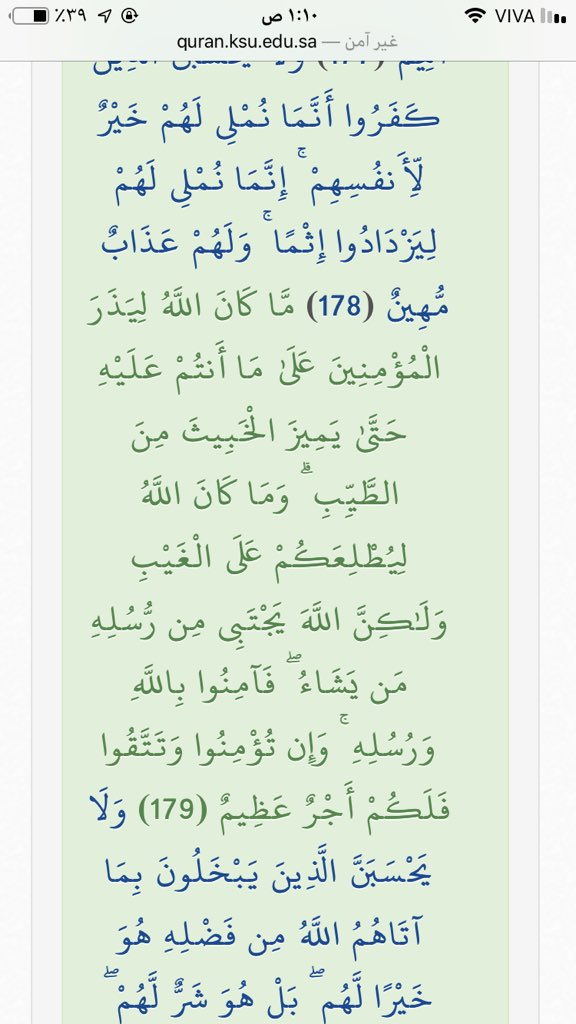 ١:١٠ ص VIVA ٪٣٩
quran.ksu.edu.sa — غير آمن
كَفَرُوا أَنَّمَا نُمْلِي لَهُمْ خَيْرٌ
لِّأَنفُسِهِمْ ۚ إِنَّمَا نُمْلِي لَهُمْ
لِيَزْدَادُوا إِثْمًا ۚ وَلَهُمْ عَذَابٌ
مُّهِينٌ (178) مَّا كَانَ اللَّهُ لِيَذَرَ
الْمُؤْمِنِينَ عَلَىٰ مَا أَنتُمْ عَلَيْهِ
حَتَّىٰ يَمِيزَ الْخَبِيثَ مِنَ
الطَّيِّبِ ۗ وَمَا كَانَ اللَّهُ
لِيُطْلِعَكُمْ عَلَى الْغَيْبِ
وَلَٰكِنَّ اللَّهَ يَجْتَبِي مِن رُّسُلِهِ
مَن يَشَاءُ ۖ فَآمِنُوا بِاللَّهِ
وَرُسُلِهِ ۚ وَإِن تُؤْمِنُوا وَتَتَّقُوا
فَلَكُمْ أَجْرٌ عَظِيمٌ (179) وَلَا
يَحْسَبَنَّ الَّذِينَ يَبْخَلُونَ بِمَا
آتَاهُمُ اللَّهُ مِن فَضْلِهِ هُوَ
خَيْرًا لَّهُم ۖ بَلْ هُوَ شَرٌّ لَّهُمْ ۖ